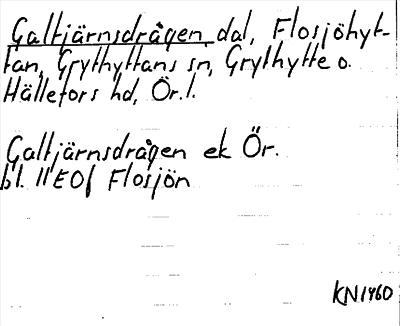 Galtjärnsdrågen, dal, Flosjöhyt-
tan, Grythyttans sn, Grythytte o.
Hällefors hd, Ör. l.
Galtjärnsdrågen ek Ör.
bl. 11E0f Flosjön
KN1960